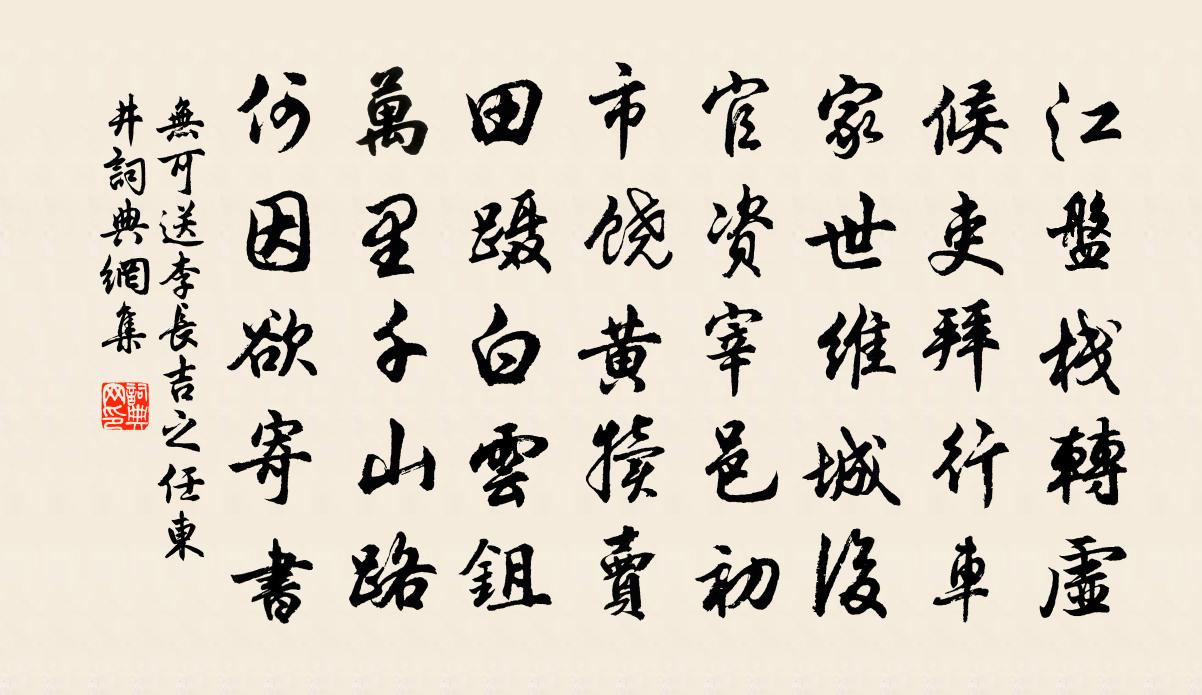 江盤栈轉虛
候吏拜行車
家世維城後
官资宰邑初
市饶黃犢賣
田蹑白雲鉏
萬里千山路
何因欲寄書
無可送李長吉之任東
井詞典網集
詞典
网印